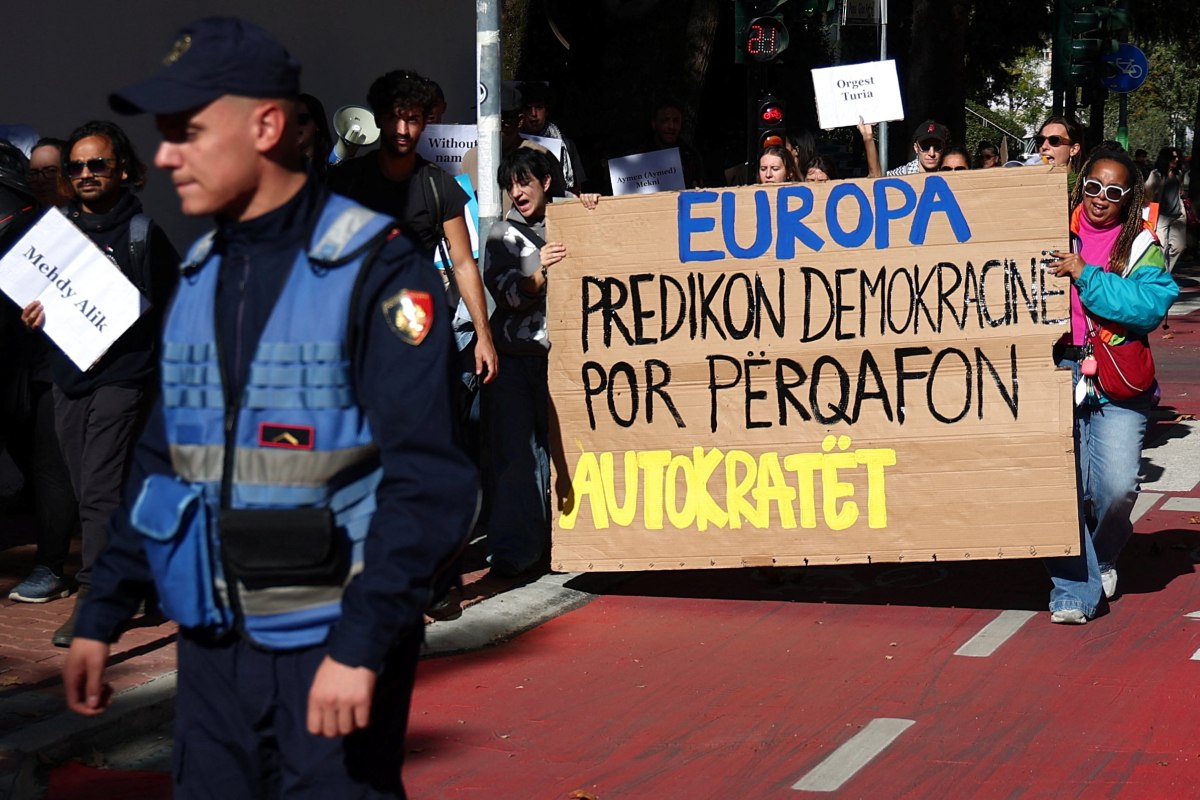 21
Orgest
Turia
Without
nam
Aymen (Aymed)
Mekni
Mehdy Alik
EUROPA
PREDIKON DEMOKRACINË
POR PËRQAFON
AUTOKRATËT